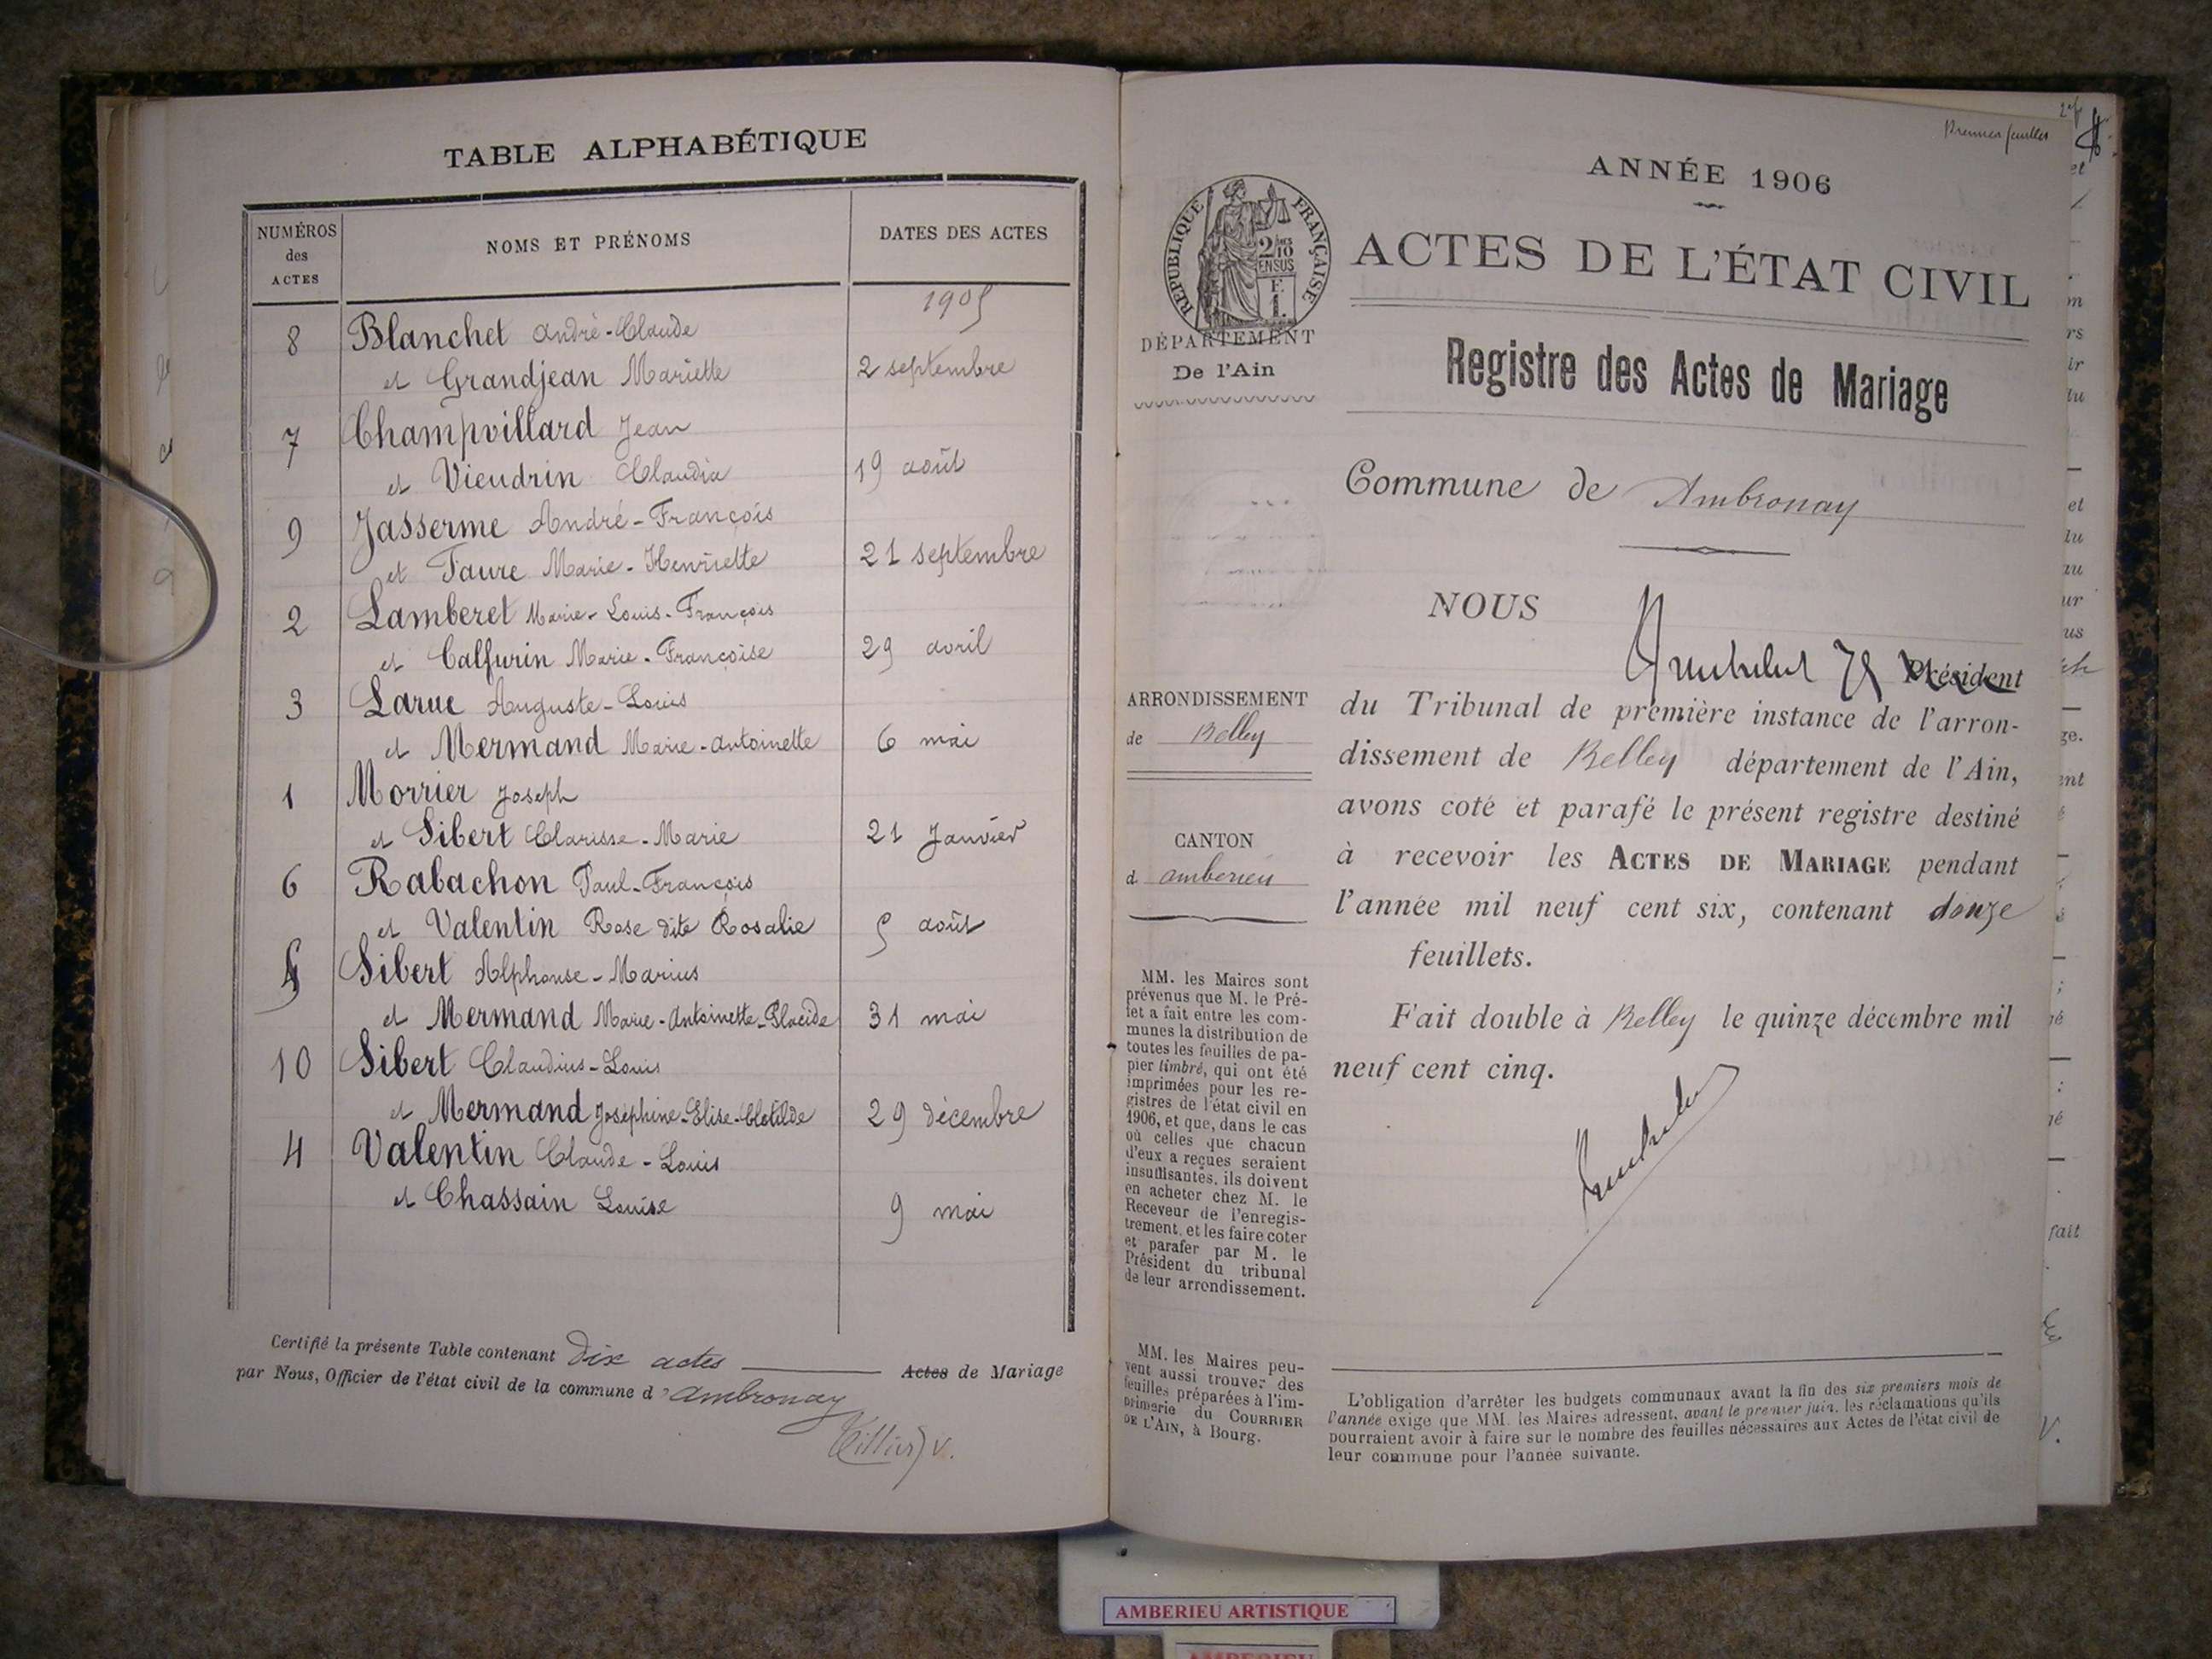 TABLE ALPHABÉTIQUE
NUMÉROS des ACTES
NOMS ET PRÉNOMS
DATES DES ACTES
1905
8 Blanchet André-Claude
et Grandjean Mariette 2 septembre
7 Champvillard Jean
et Vieudrin Claudia 19 août
9 Jasserme André-François
et Faure Marie-Henriette 21 septembre
2 Lamberet Marie-Louis-François
et Calfurin Marie-Françoise 29 avril
3 Larue Auguste-Louis
et Mermand Marie-Antoinette 6 mai
1 Morrier Joseph
et Sibert Clarisse-Marie 21 Janvier
6 Rabachon Paul-François
et Valentin Rose dite Rosalie 5 août
5 Sibert Alphonse-Marius
et Mermand Marie-Antoinette-Placide 31 mai
10 Sibert Claudius-Louis
et Mermand Joséphine-Elise-Clotilde 29 décembre
4 Valentin Claude-Louis
et Chassain Louise 9 mai
Certifié la présente Table contenant dix actes Actes de Mariage
par Nous, Officier de l'état civil de la commune d'Ambronay
ANNÉE 1906
ACTES DE L'ÉTAT CIVIL
RÉPUBLIQUE FRANÇAISE
2/10 EN SUS
F. 1.
DÉPARTEMENT
De l'Ain
Registre des Actes de Mariage
Commune de Ambronay
NOUS
Président
du Tribunal de première instance de l'arron-
dissement de Belley département de l'Ain,
avons coté et parafé le présent registre destiné
à recevoir les ACTES DE MARIAGE pendant
l'année mil neuf cent six, contenant douze
feuillets.
Fait double à Belley le quinze décembre mil
neuf cent cinq.
ARRONDISSEMENT
de Belley
CANTON
d ambérieu
MM. les Maires sont
prévenus que M. le Pré-
fet a fait entre les com-
munes la distribution de
toutes les feuilles de pa-
pier timbré, qui ont été
imprimées pour les re-
gistres de l'état civil en
1906, et que, dans le cas
où celles que chacun
d'eux a reçues seraient
insuffisantes, ils doivent
en acheter chez M. le
Receveur de l'enregis-
trement, et les faire coter
et parafer par M. le
Président du tribunal
de leur arrondissement.
MM. les Maires peu-
vent aussi trouver des
feuilles préparées à l'im-
primerie du COURRIER
DE L'AIN, à Bourg.
L'obligation d'arrêter les budgets communaux avant la fin des six premiers mois de
l'année exige que MM. les Maires adressent, avant le premier juin, les réclamations qu'ils
pourraient avoir à faire sur le nombre des feuilles nécessaires aux Actes de l'état civil de
leur commune pour l'année suivante.
AMBERIEU ARTISTIQUE
AMBERIEU